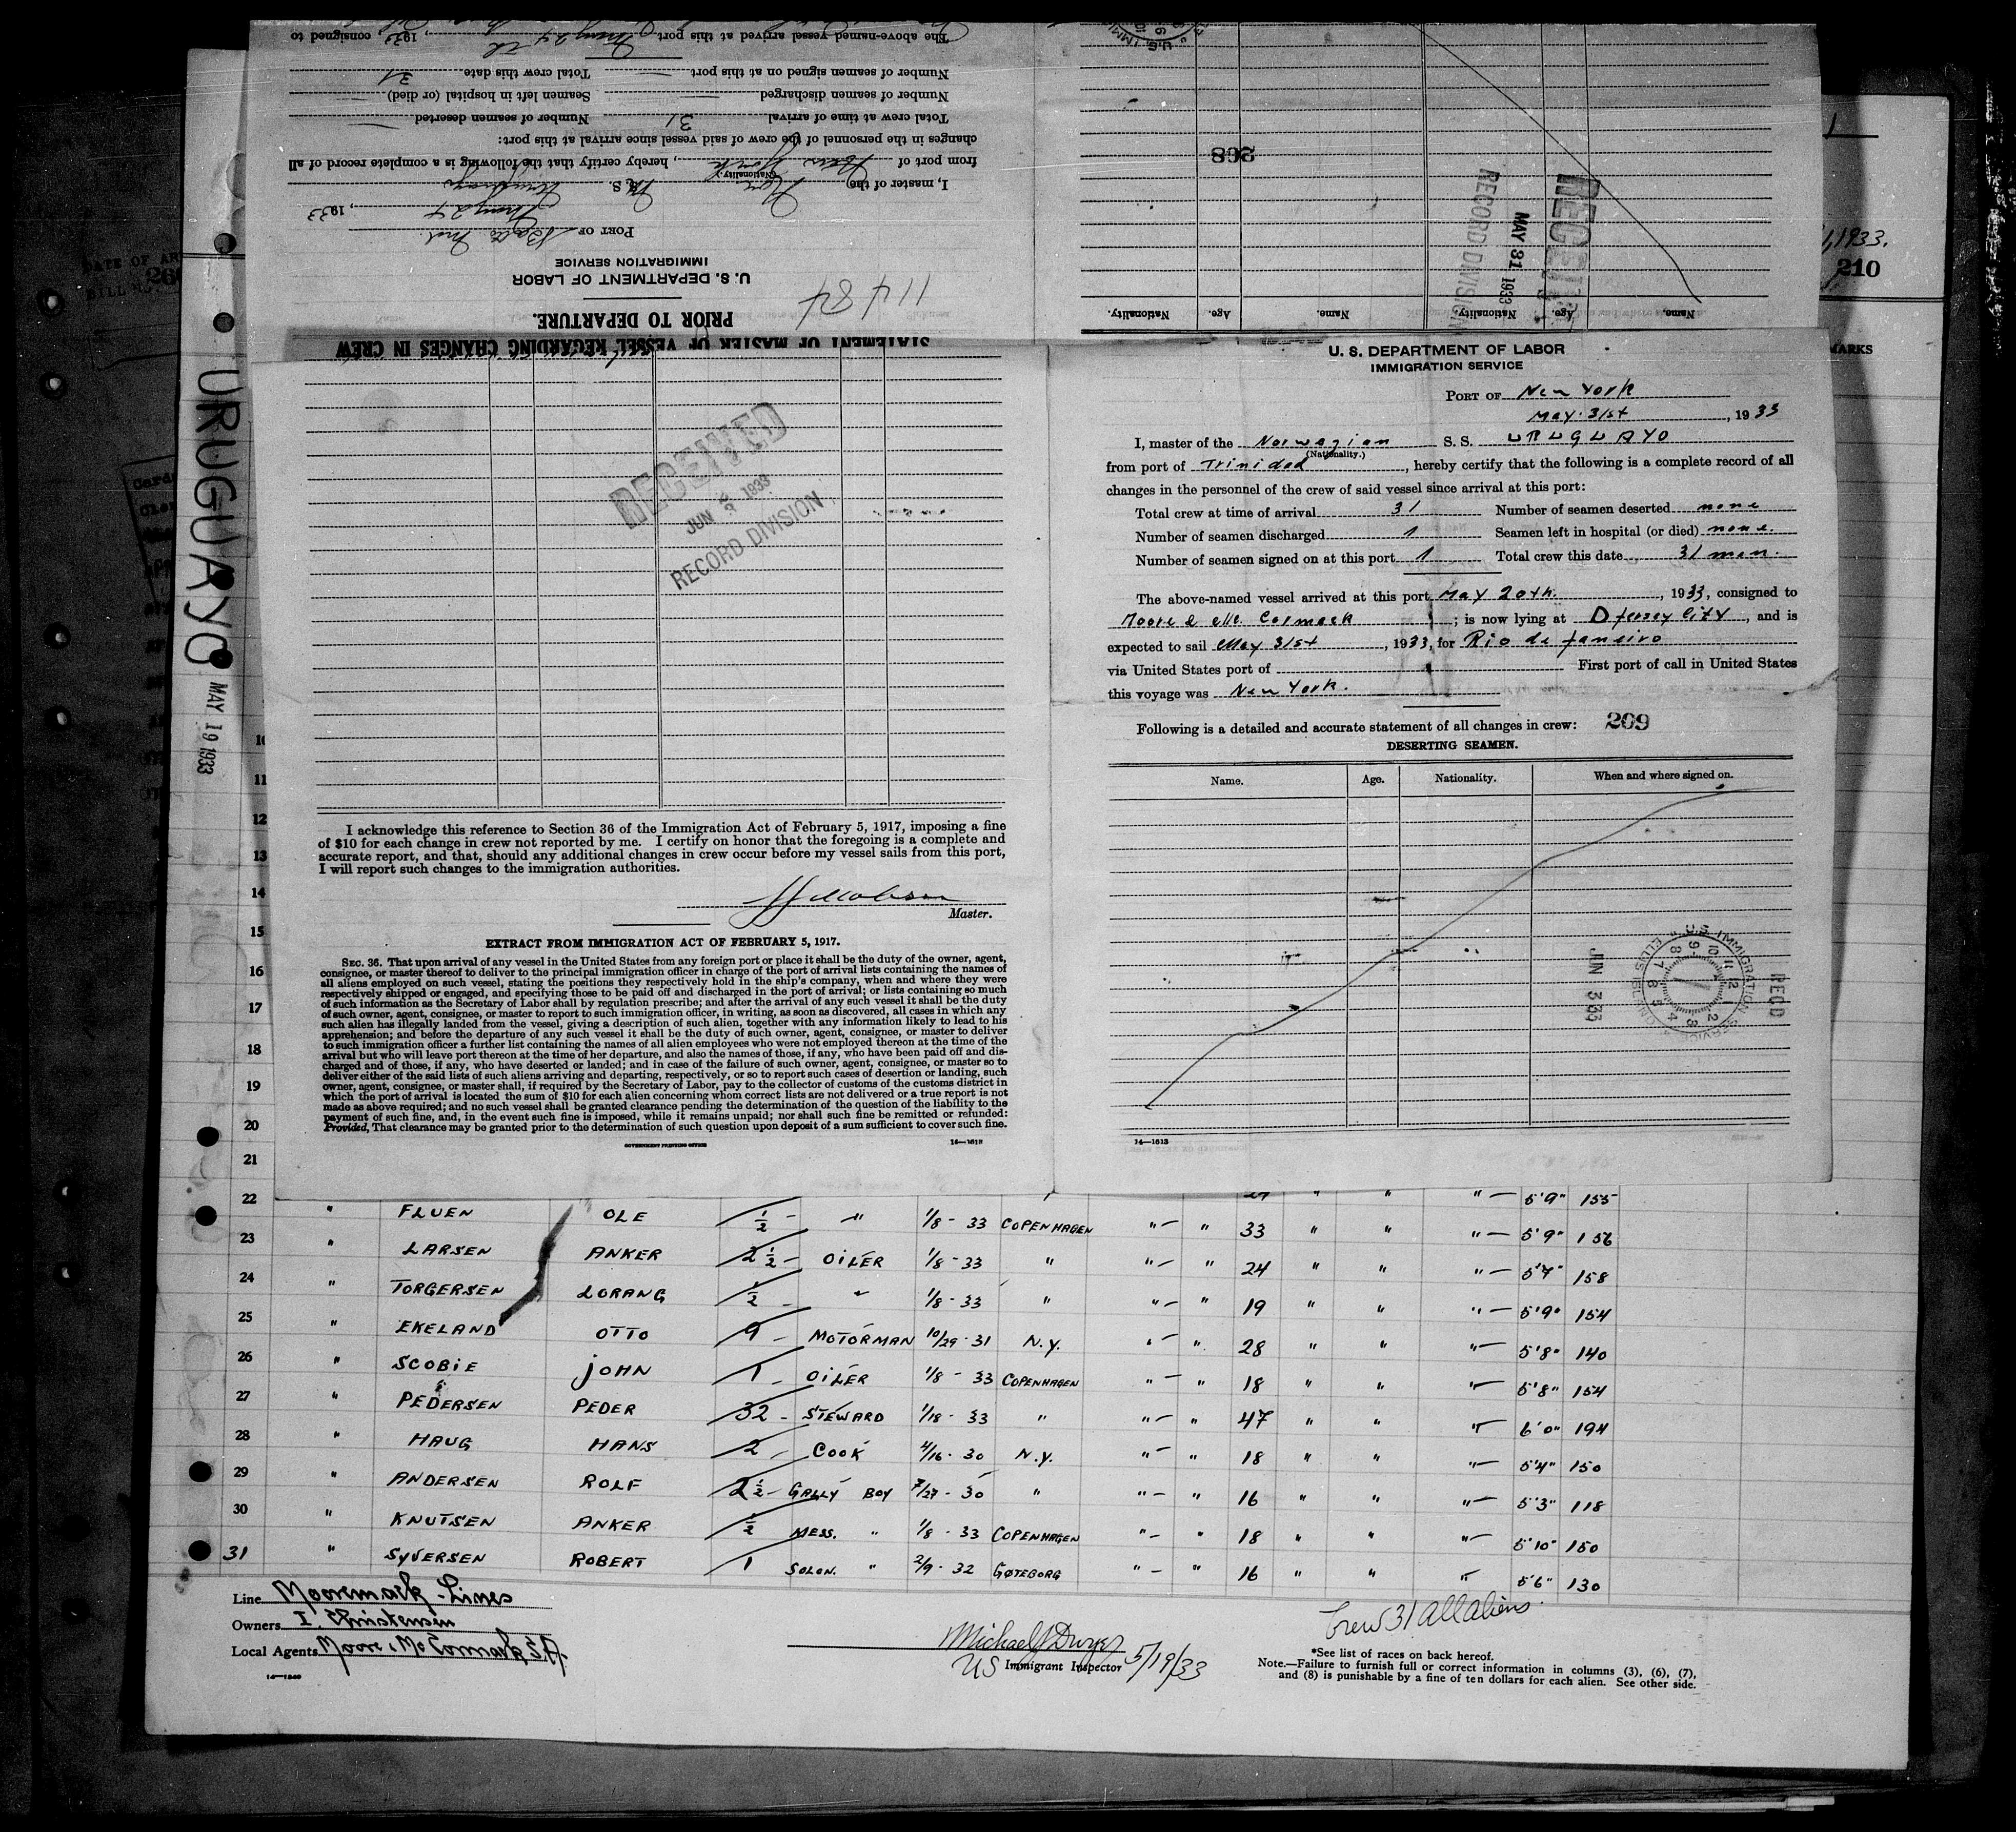 The above-named vessel arrived at this port May 24 th, 1933 consigned to
Number of seamen signed on at this port — Total crew this date 31
Number of seamen discharged — Seamen left in hospital (or died) —
Total crew at time of arrival 31 Number of seamen deserted —
changes in the personnel of the crew of said vessel since arrival at this port:
from port of New York, hereby certify that the following is a complete record of all
(Nationality.)
I, master of the Nor M. S.
May 24, 1933
PORT OF Balto Md.
IMMIGRATION SERVICE
U. S. DEPARTMENT OF LABOR
11484
PRIOR TO DEPARTURE.
STATEMENT OF MASTER OF VESSEL REGARDING CHANGES IN CREW
U.S. IMMI
268
RECORD DIVISION
MAY 31 1933
Name. Age. Nationality. Name. Age. Nationality.
1933.
210
MARKS
DATE OF AR
URUGUAYO
MAY 19 1933
RECEIVED
JUN 3 1933
RECORD DIVISION
I acknowledge this reference to Section 36 of the Immigration Act of February 5, 1917, imposing a fine
of $10 for each change in crew not reported by me. I certify on honor that the foregoing is a complete and
accurate report, and that, should any additional changes in crew occur before my vessel sails from this port,
I will report such changes to the immigration authorities.
Master.
EXTRACT FROM IMMIGRATION ACT OF FEBRUARY 5, 1917.
SEC. 36. That upon arrival of any vessel in the United States from any foreign port or place it shall be the duty of the owner, agent,
consignee, or master thereof to deliver to the principal immigration officer in charge of the port of arrival lists containing the names of
all aliens employed on such vessel, stating the positions they respectively hold in the ship's company, when and where they were
respectively shipped or engaged, and specifying those to be paid off and discharged in the port of arrival; or lists containing so much
of such information as the Secretary of Labor shall by regulation prescribe; and after the arrival of any such vessel it shall be the duty
of such owner, agent, consignee, or master to report to such immigration officer, in writing, as soon as discovered, all cases in which any
such alien has illegally landed from the vessel, giving a description of such alien, together with any information likely to lead to his
apprehension; and before the departure of any such vessel it shall be the duty of such owner, agent, consignee, or master to deliver
to such immigration officer a further list containing the names of all alien employees who were not employed thereon at the time of the
arrival but who will leave port thereon at the time of her departure, and also the names of those, if any, who have been paid off and dis-
charged and of those, if any, who have deserted or landed; and in case of the failure of such owner, agent, consignee, or master so to
deliver either of the said lists of such aliens arriving and departing, respectively, or so to report such cases of desertion or landing, such
owner, agent, consignee, or master shall, if required by the Secretary of Labor, pay to the collector of customs of the customs district in
which the port of arrival is located the sum of $10 for each alien concerning whom correct lists are not delivered or a true report is not
made as above required; and no such vessel shall be granted clearance pending the determination of the question of the liability to the
payment of such fine, and, in the event such fine is imposed, while it remains unpaid; nor shall such fine be remitted or refunded:
Provided, That clearance may be granted prior to the determination of such question upon deposit of a sum sufficient to cover such fine.
GOVERNMENT PRINTING OFFICE 14—1613
U. S. DEPARTMENT OF LABOR
IMMIGRATION SERVICE
PORT OF New York
May 31st, 1933
I, master of the Norwegian S. S. URUGUAYO
(Nationality.)
from port of Trinidad, hereby certify that the following is a complete record of all
changes in the personnel of the crew of said vessel since arrival at this port:
Total crew at time of arrival 31 Number of seamen deserted none
Number of seamen discharged 1 Seamen left in hospital (or died) none.
Number of seamen signed on at this port 1 Total crew this date 31 men.
The above-named vessel arrived at this port May 20th., 1933, consigned to
Moore & Mc. Cormack; is now lying at D Jersey City, and is
expected to sail May 31st, 1933, for Rio de Janeiro
via United States port of First port of call in United States
this voyage was New York.
Following is a detailed and accurate statement of all changes in crew: 209
DESERTING SEAMEN.
Name. Age. Nationality. When and where signed on.
U.S. IMMIGRATION SERVICE ELLIS ISLAND
JUN 3 1933
REC'D
14—1613
10
11
12
13
14
15
16
17
18
19
20
21
22 " FLUEN OLE 1/2 - " 1/8 - 33 COPENHAGEN " - " 33 " " " - 5'9" 156
23 " LARSEN ANKER 2 1/2 - OILER 1/8 - 33 " " - " 24 " " " - 5'7" 158
24 " TORGERSEN LORANG 1/2 - " 1/8 - 33 " " - " 19 " " " - 5'9" 154
25 " EKELAND OTTO 9 - MOTORMAN 10/29 - 31 N.Y. " - " 28 " " " - 5'8" 140
26 " SCOBIE JOHN 1 - OILER 1/8 - 33 COPENHAGEN " - " 18 " " " - 5'8" 154
27 " PEDERSEN PEDER 32 - STEWARD 1/18 - 33 " " - " 47 " " " - 6'0" 194
28 " HAUG HANS 2 - COOK 4/16 - 30 N.Y. " - " 18 " " " - 5'4" 150
29 " ANDERSEN ROLF 2 1/2 - GALLY BOY 7/27 - 30 " " - " 16 " " " - 5'3" 118
30 " KNUTSEN ANKER 1/2 MESS. " 1/8 - 33 COPENHAGEN " - " 18 " " " - 5'10" 150
31 " SYVERSEN ROBERT 1 SOLON. " 2/9 - 32 GØTEBORG " - " 16 " " " - 5'6" 130
5'9" 155
Line Mooremack-Lines
Owners I. Christensen
Local Agents Moore & McCormack S.A.
Michael J Dwyer
US Immigrant Inspector 5/19/33
Crew 31 all aliens.
*See list of races on back hereof.
Note.—Failure to furnish full or correct information in columns (3), (6), (7),
and (8) is punishable by a fine of ten dollars for each alien. See other side.